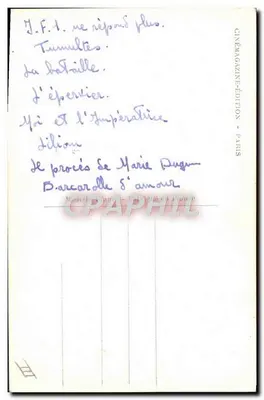 I.F.1. ne répond plus.
Tumultes.
La bataille.
L'épervier.
Moi et l'Impératrice
Liliom
Le procès de Marie Dugan
Barcarolle d'amour
CINÉMAGAZINE-ÉDITION • PARIS
CPAPHIL